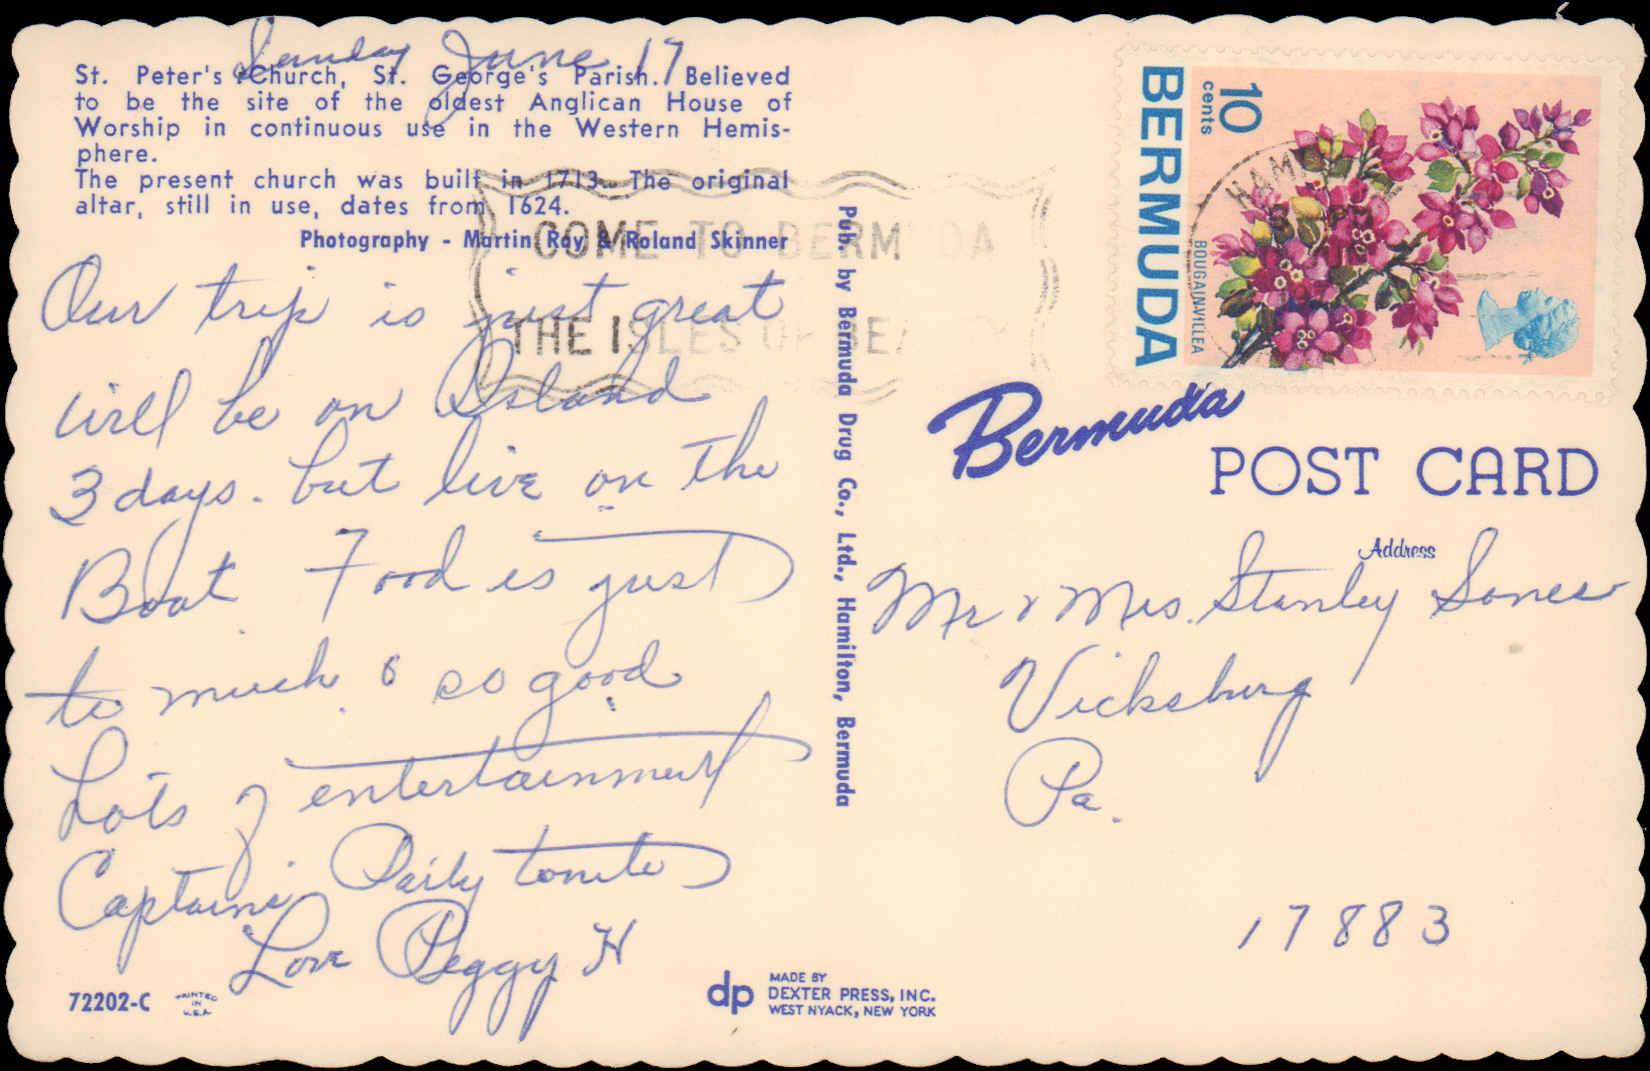 Sunday June 17
St. Peter's Church, St. George's Parish. Believed
to be the site of the oldest Anglican House of
Worship in continuous use in the Western Hemis-
phere.
The present church was built in 1713. The original
altar, still in use, dates from 1624.
Photography - Martin Ray & Roland Skinner
Our trip is just great
will be on Island
3 days. but live on the
Boat Food is just
to much & so good
Lots of entertainment
Captains Party tonite
Love Peggy H
72202-C
PRINTED
IN
U.S.A.
Pub. by Bermuda Drug Co., Ltd., Hamilton, Bermuda
dp
MADE BY
DEXTER PRESS, INC.
WEST NYACK, NEW YORK
COME TO BERMUDA
THE ISLES OF BEAUTY
10
cents
BERMUDA
BOUGAINVILLEA
Bermuda
POST CARD
Address
Mr & Mrs. Stanley Sones
Vicksburg
Pa.
17883